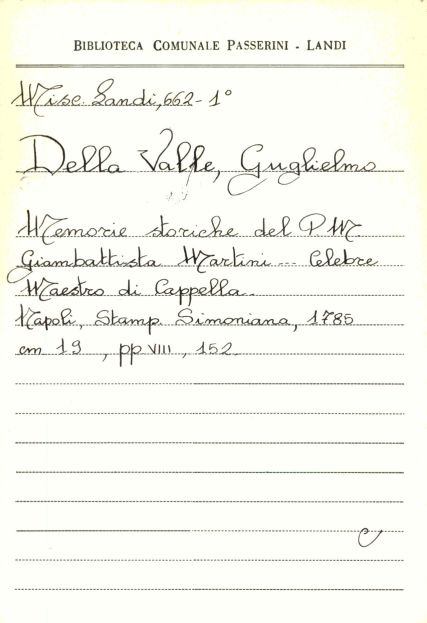 BIBLIOTECA COMUNALE PASSERINI - LANDI
Misc. Landi, 662-1°
Della Valle, Guglielmo
Memorie storiche del P M
Giambattista Martini --- Celebre
Maestro di Cappella.
Napoli, Stamp. Simoniana, 1785
cm 19 , pp VIII , 152.